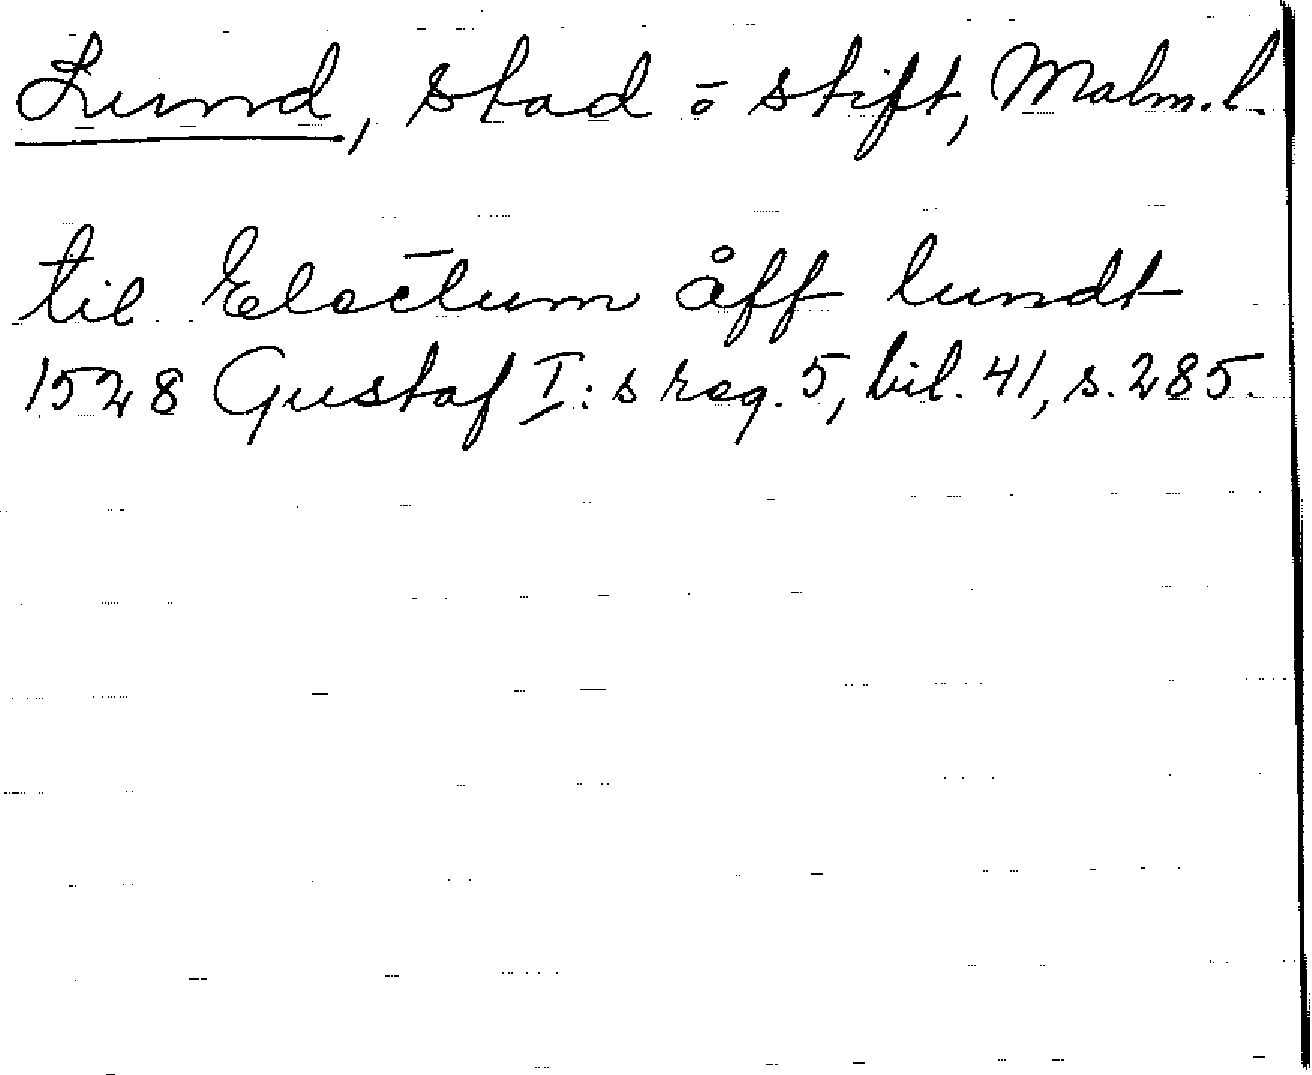 Lund, stad ō stift, Malm. l.
til Electum åff lundt
1528 Gustaf I:s reg. 5, bil. 41, s. 285.